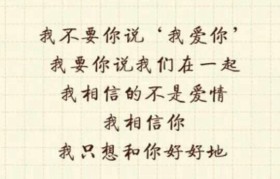 我不要你说‘我爱你’
我要你说我们在一起
我相信的不是爱情
我相信你
我只想和你好好地